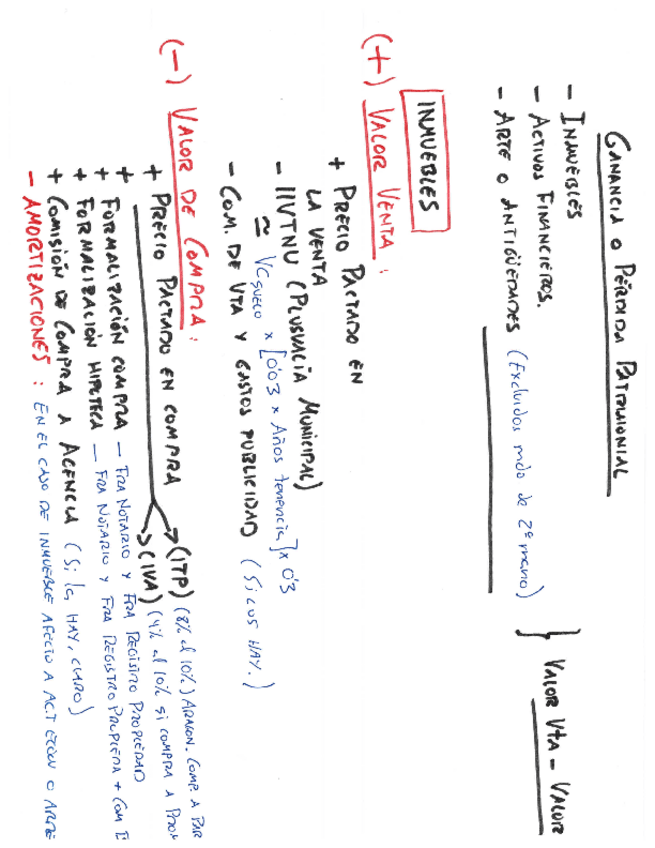 GANANCIA O PÉRDIDA PATRIMONIAL
- INMUEBLES
- ACTIVOS FINANCIEROS.
- ARTE O ANTIGÜEDADES (Excluidos mdo de 2ª mano)
} VALOR VTA - VALOR
INMUEBLES
(+) VALOR VENTA:
+ PRECIO PACTADO EN
LA VENTA
- IIVTNU (PLUSVALÍA MUNICIPAL)
≈ VC SUELO x [0'03 x Años tenencia] x 0'3
- COM. DE VTA Y GASTOS PUBLICIDAD (SI LOS HAY.)
(-) VALOR DE COMPRA:
+ PRECIO PACTADO EN COMPRA
→ (ITP) (8% al 10%) ARAGON. COMP. A PAR
+ → (IVA) (4% al 10% si COMPRA A
+ FORMALIZACIÓN COMPRA - FRA NOTARIO Y FRA REGISTRO PROPIEDAD
+ FORMALIZACIÓN HIPOTECA - FRA NOTARIO Y FRA REGISTRO PROPIEDA + COM
+ COMISIÓN DE COMPRA A AGENCIA (Si la HAY, CLARO)
- AMORTIZACIONES: EN EL CASO DE INMUEBLE AFECTO A ACT ECON O